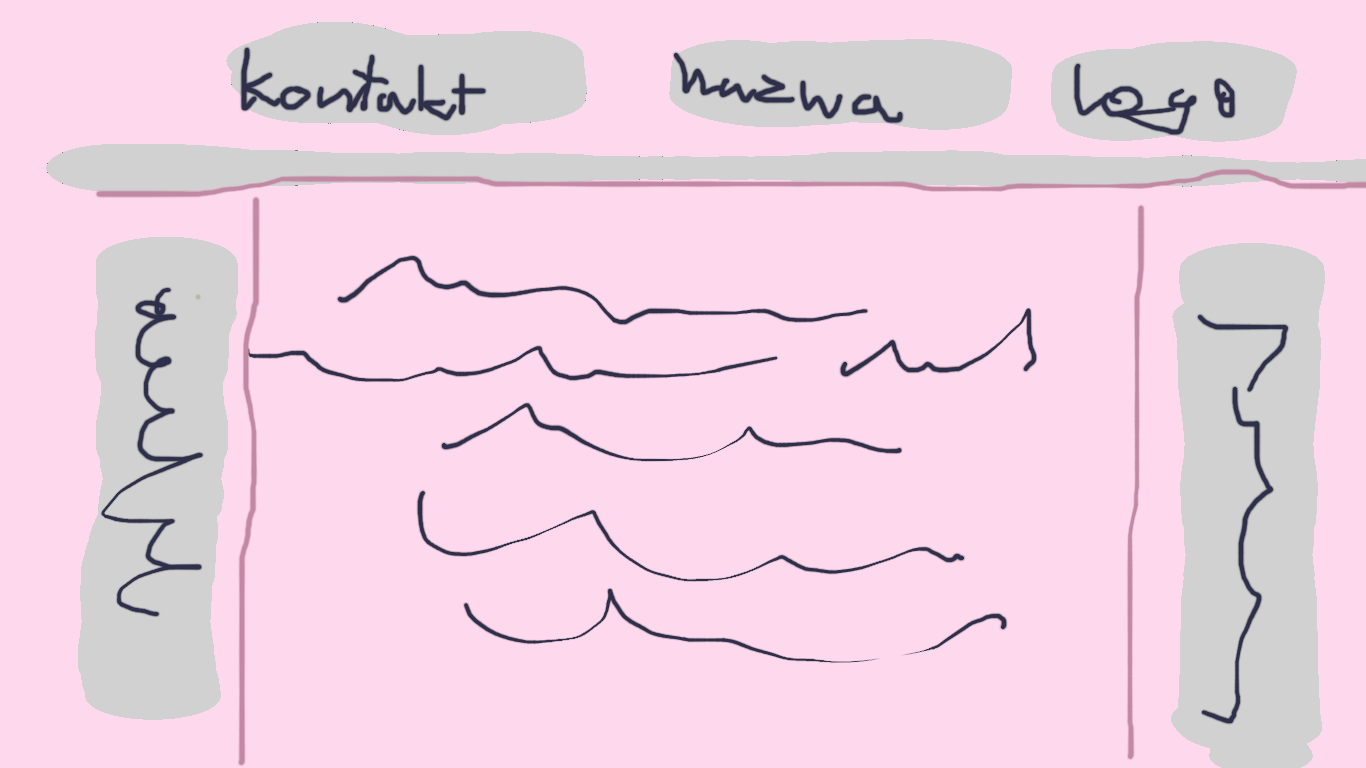 kontakt nazwa logo